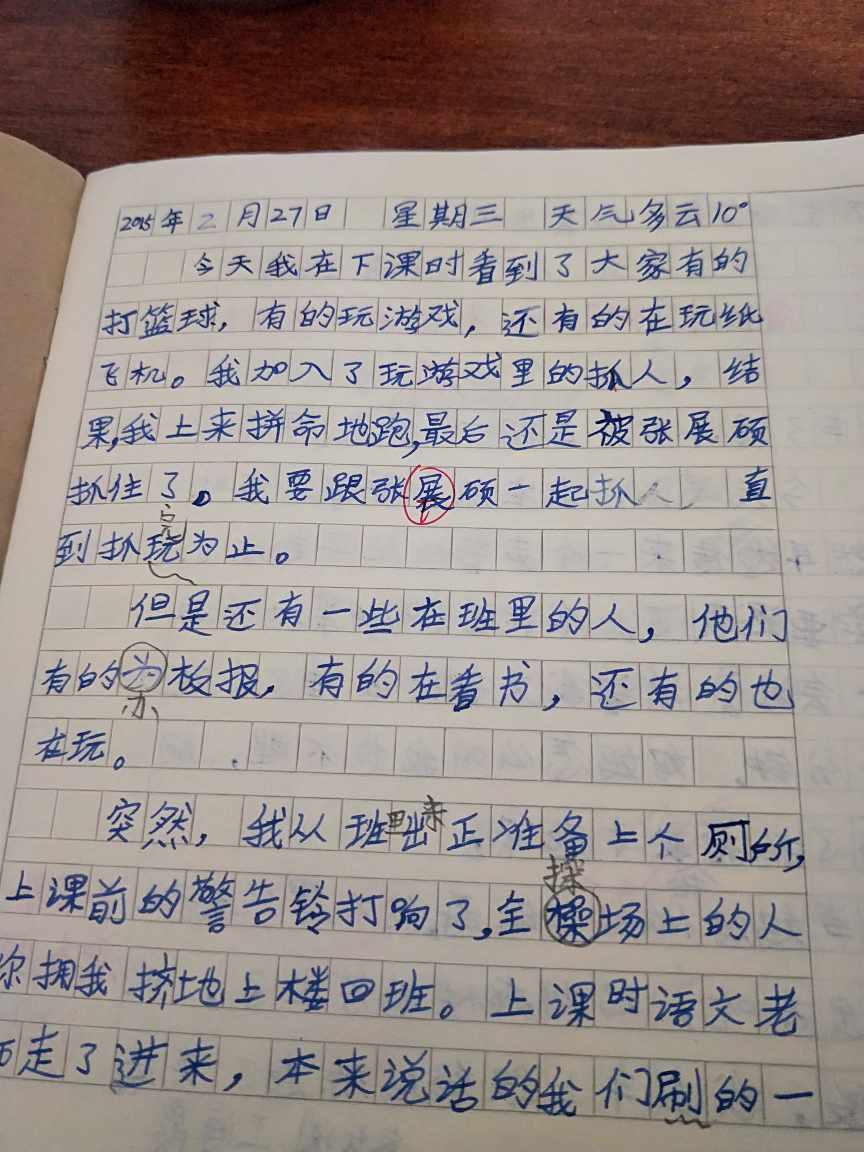 2015年2月27日 星期三 天气多云10°
今天我在下课时看到了大家有的
打篮球，有的玩游戏，还有的在玩纸
飞机。我加入了玩游戏里的抓人，结
果，我上来拼命地跑，最后还是被张展硕
抓住了。我要跟张展硕一起抓人，直
完
到抓玩为止。
但是还有一些在班里的人，他们
有的为板报，有的在看书，还有的也
办
在玩。
突然，我从班里出来正准备上个厕所，
操
上课前的警告铃打响了，全操场上的人
你拥我挤地上楼回班。上课时语文老
走了进来，本来说话的我们刷的一